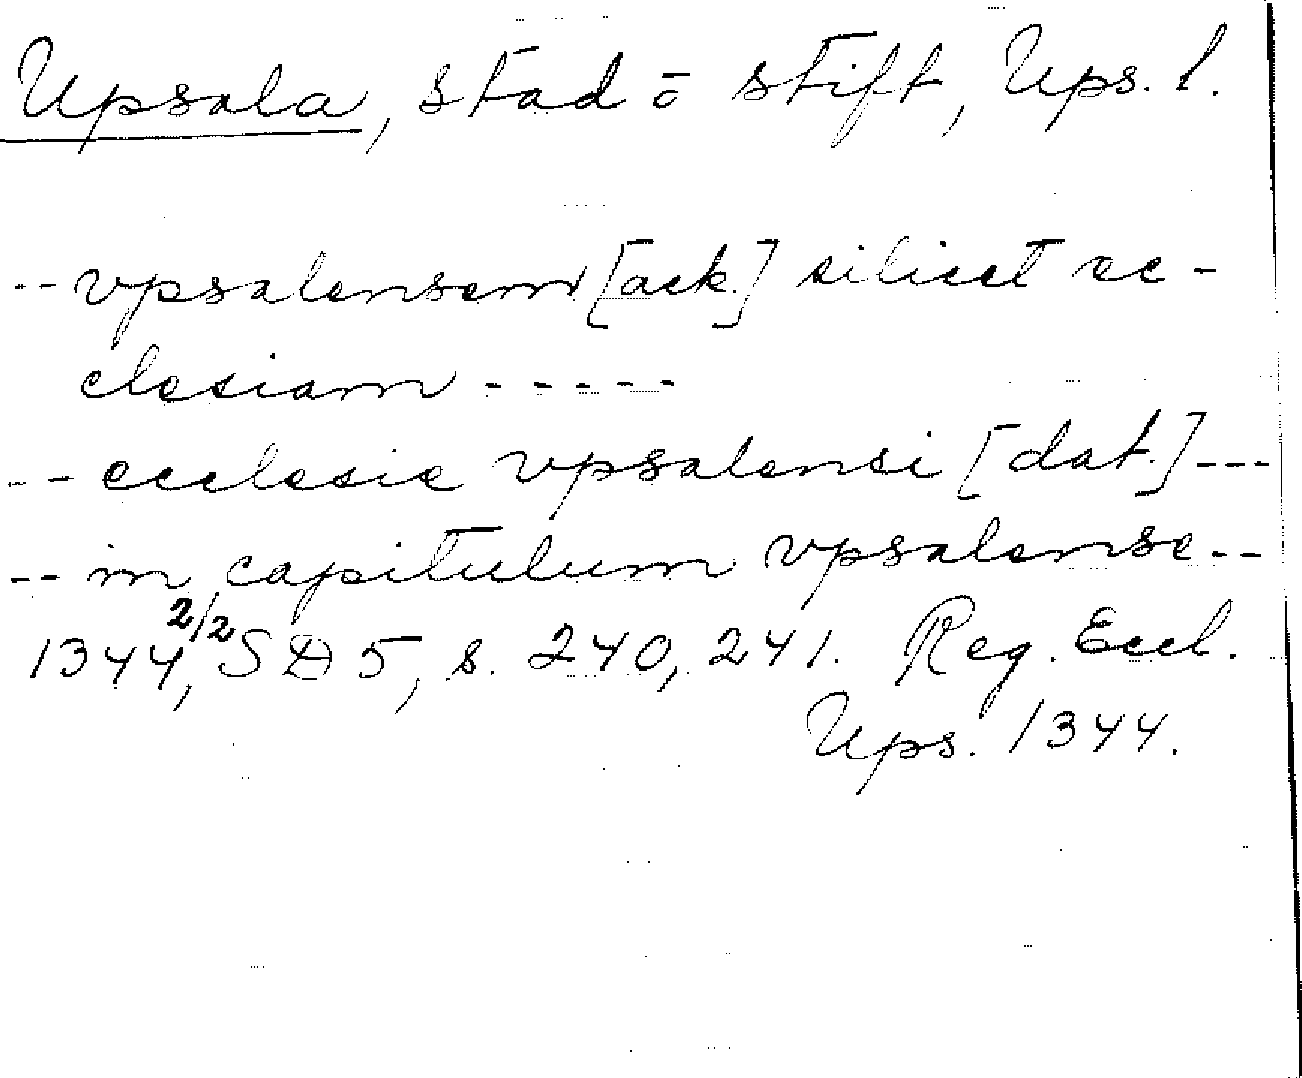 Upsala, stad o stift, Ups. l.
-- vpsalensem [ack.] siliset ec-
clesiam - - - - -
-- ecclesie vpsalensi [dat.] ---
-- in capitulum vpsalense --
1344 2/2, SD 5, s. 240, 241. Reg. Eccl.
Ups. 1344.